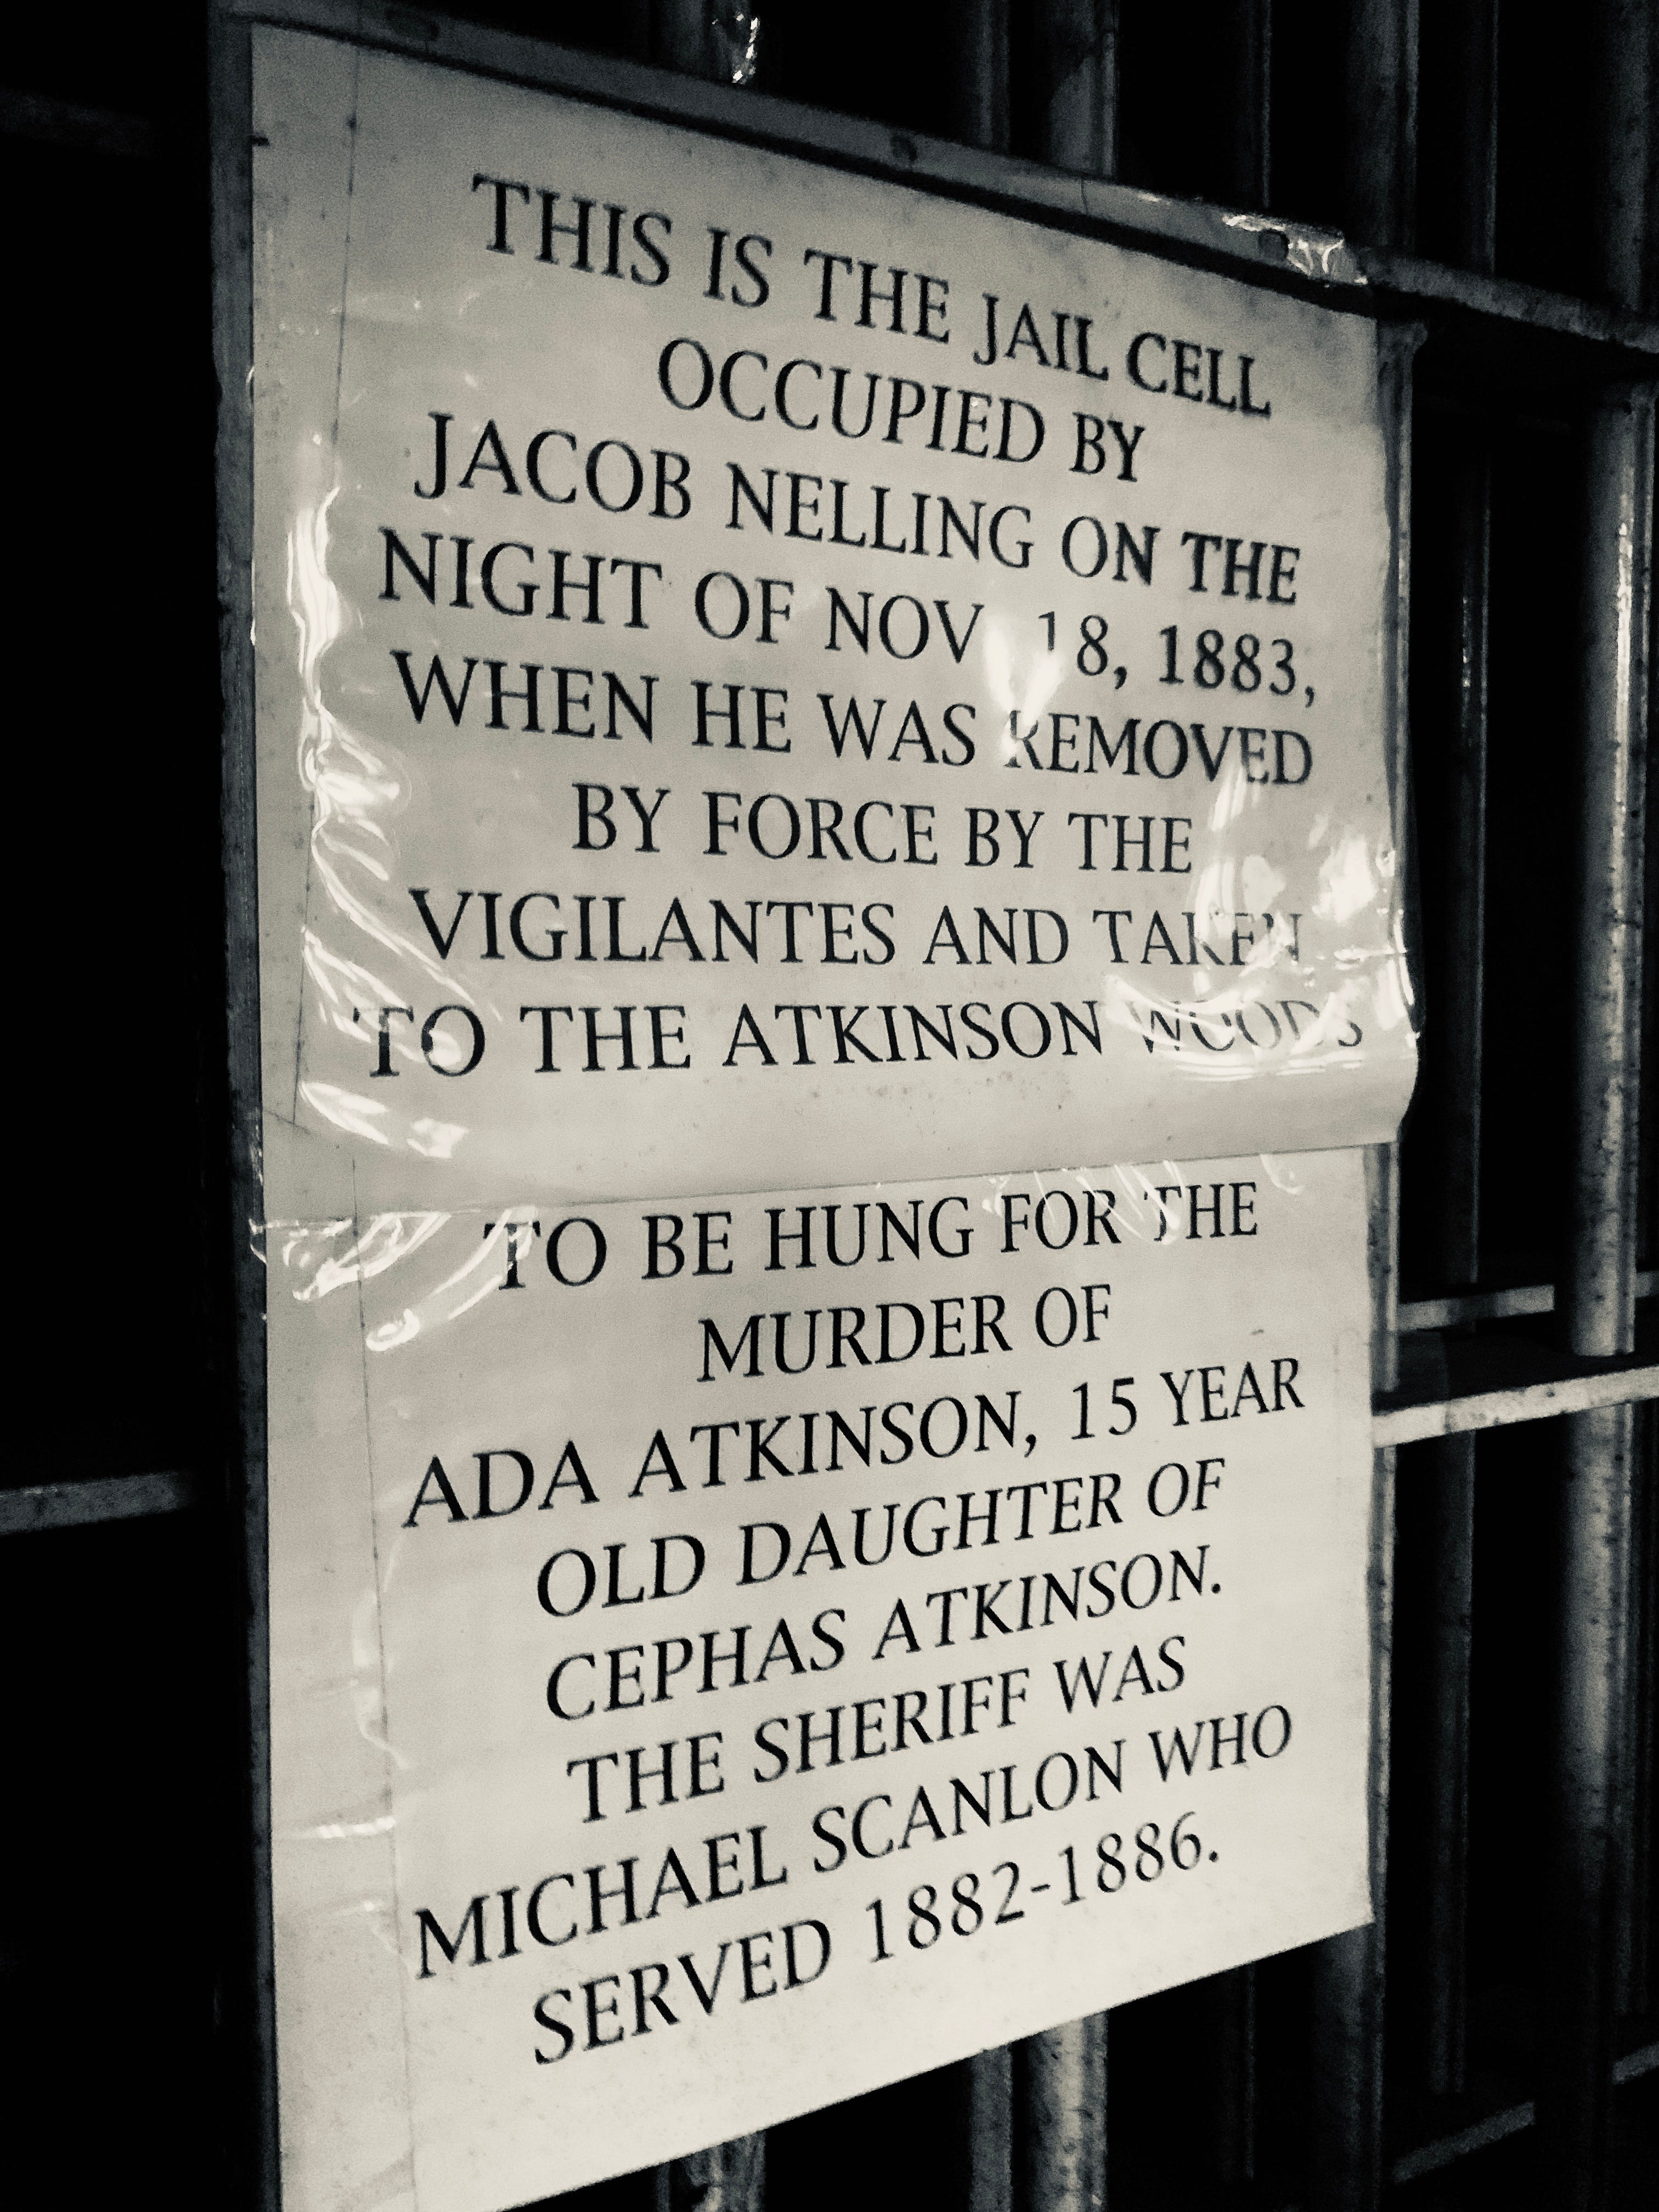 THIS IS THE JAIL CELL
OCCUPIED BY
JACOB NELLING ON THE
NIGHT OF NOV 18, 1883,
WHEN HE WAS REMOVED
BY FORCE BY THE
VIGILANTES AND TAKEN
TO THE ATKINSON WOODS
TO BE HUNG FOR THE
MURDER OF
ADA ATKINSON, 15 YEAR
OLD DAUGHTER OF
CEPHAS ATKINSON.
THE SHERIFF WAS
MICHAEL SCANLON WHO
SERVED 1882-1886.